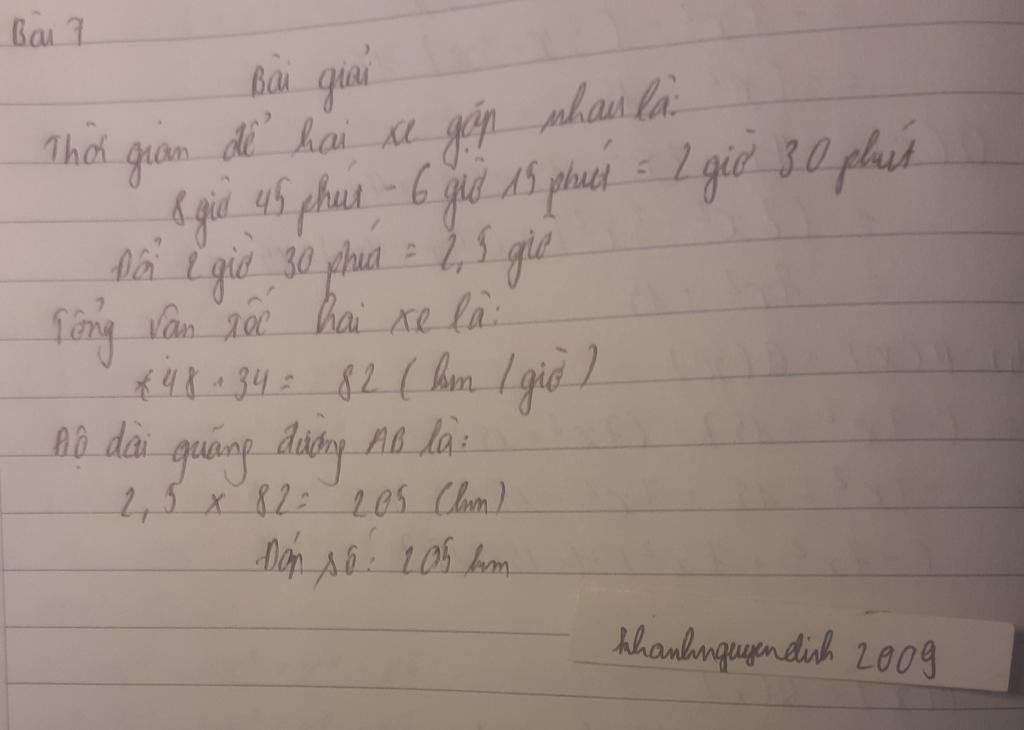 Bài 7
Bài giải
Thời gian để hai xe gặp nhau là:
8 giờ 45 phút - 6 giờ 15 phút = 2 giờ 30 phút
Đổi 2 giờ 30 phút = 2,5 giờ
Tổng vận tốc hai xe là:
48 + 34 = 82 (km/giờ)
Độ dài quãng đường AB là:
2,5 x 82 = 205 (km)
Đáp số: 205 km
khanhnguyendinh 2009